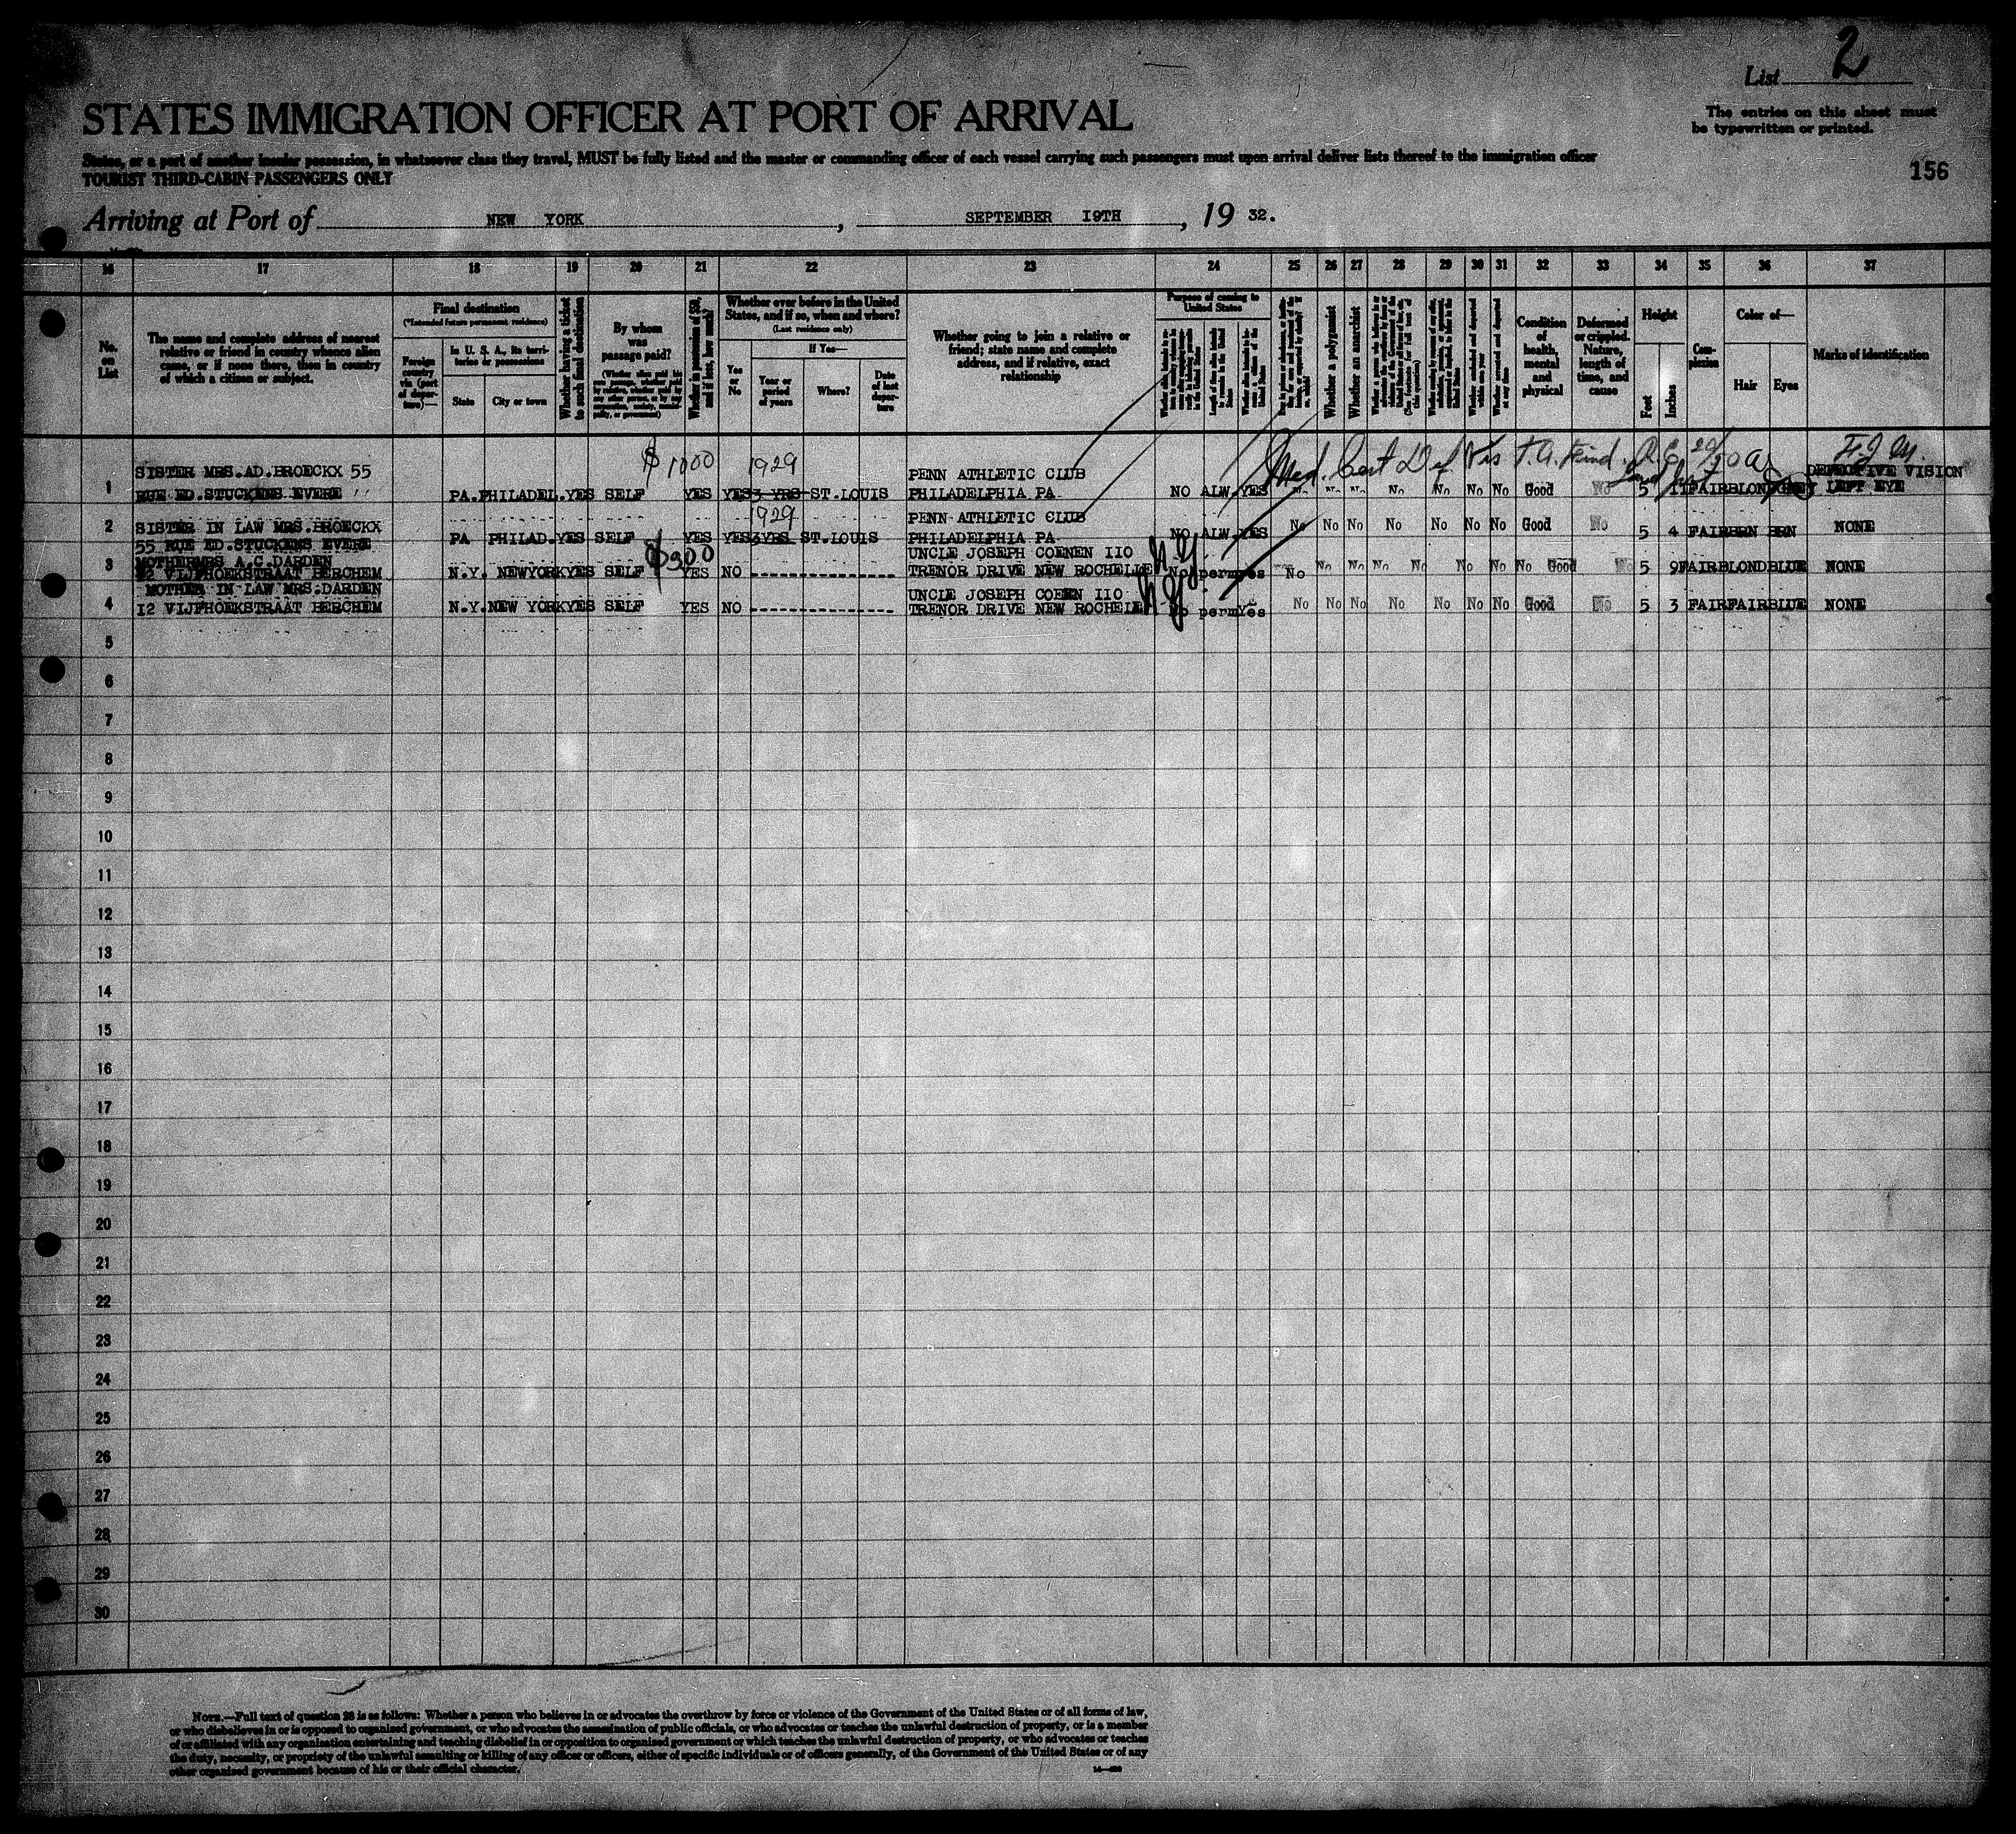 List 2
STATES IMMIGRATION OFFICER AT PORT OF ARRIVAL
The entries on this sheet must
be typewritten or printed.
States, or a part of another insular possession, in whatsoever class they travel, MUST be fully listed and the master or commanding officer of each vessel carrying such passengers must upon arrival deliver lists thereof to the immigration officer
TOURIST THIRD-CABIN PASSENGERS ONLY
156
Arriving at Port of NEW YORK, SEPTEMBER I9TH, 19 32.
16 17 18 19 20 21 22 23 24 25 26 27 28 29 30 31 32 33 34 35 36 37
No. on List
The name and complete address of nearest
relative or friend in country whence alien
came, or if none there, then in country
of which a citizen or subject.
Final destination
(*Intended future permanent residence)
Foreign country via (port of departure)—
In U. S. A., its territories or possessions
State
City or town
Whether having a ticket to such final destination
By whom was passage paid?
Whether in possession of $50, and if less, how much?
Whether ever before in the United
States, and if so, when and where?
(Last residence only)
Yes or No
If Yes—
Year or period of years
Where?
Date of last departure
Whether going to join a relative or
friend; state name and complete
address, and if relative, exact
relationship
Purpose of coming to United States
Whether a polygamist
Whether an anarchist
Condition of health, mental and physical
Deformed or crippled. Nature, length of time, and cause
Height
Feet
Inches
Complexion
Color of—
Hair
Eyes
Marks of identification
$1000 1929 Med. Cert Def Vis F.J.M.
1 SISTER MRS.AD.BROECKX 55 PENN ATHLETIC CLUB DEFECTIVE VISION
RUE ED.STUCKENS EVERE PA. PHILADEL. YES SELF YES YES 3 YRS ST.LOUIS PHILADELPHIA PA. NO ALW. YES No No No No No No No Good No 5 11 FAIR BLOND GREY LEFT EYE
1929
2 SISTER IN LAW MRS.BROECKX PENN ATHLETIC CLUB
55 RUE ED.STUCKENS EVERE PA PHILAD. YES SELF YES YES 3YRS ST.LOUIS PHILADELPHIA PA. NO ALW. YES No No No No No No No Good No 5 4 FAIR BRN BRN NONE
3 MOTHER MRS A.C.DARDEN $300 UNCLE JOSEPH COENEN IIO N.Y.
12 VIJFHOEKSTRAAT BERCHEM N.Y. NEWYORK YES SELF YES NO TRENOR DRIVE NEW ROCHELLE No perm yes No No No No No No No No Good No 5 9 FAIR BLOND BLUE NONE
4 MOTHER IN LAW MRS.DARDEN UNCLE JOSEPH COENN IIO N.Y.
I2 VIJFHOEKSTRAAT BERCHEM N.Y. NEW YORK YES SELF YES NO TRENOR DRIVE NEW ROCHELL No perm Yes No No No No No No No Good No 5 3 FAIR FAIR BLUE NONE
5
6
7
8
9
10
11
12
13
14
15
16
17
18
19
20
21
22
23
24
25
26
27
28
29
30
NOTE.—Full text of question 28 is as follows: Whether a person who believes in or advocates the overthrow by force or violence of the Government of the United States or of all forms of law,
or who disbelieves in or is opposed to organized government, or who advocates the assassination of public officials, or who advocates or teaches the unlawful destruction of property, or is a member
of or affiliated with any organization entertaining and teaching disbelief in or opposition to organized government or which teaches the unlawful destruction of property, or who advocates or teaches
the duty, necessity, or propriety of the unlawful assaulting or killing of any officer or officers, either of specific individuals or of officers generally, of the Government of the United States or of any
other organized government because of his or their official character.